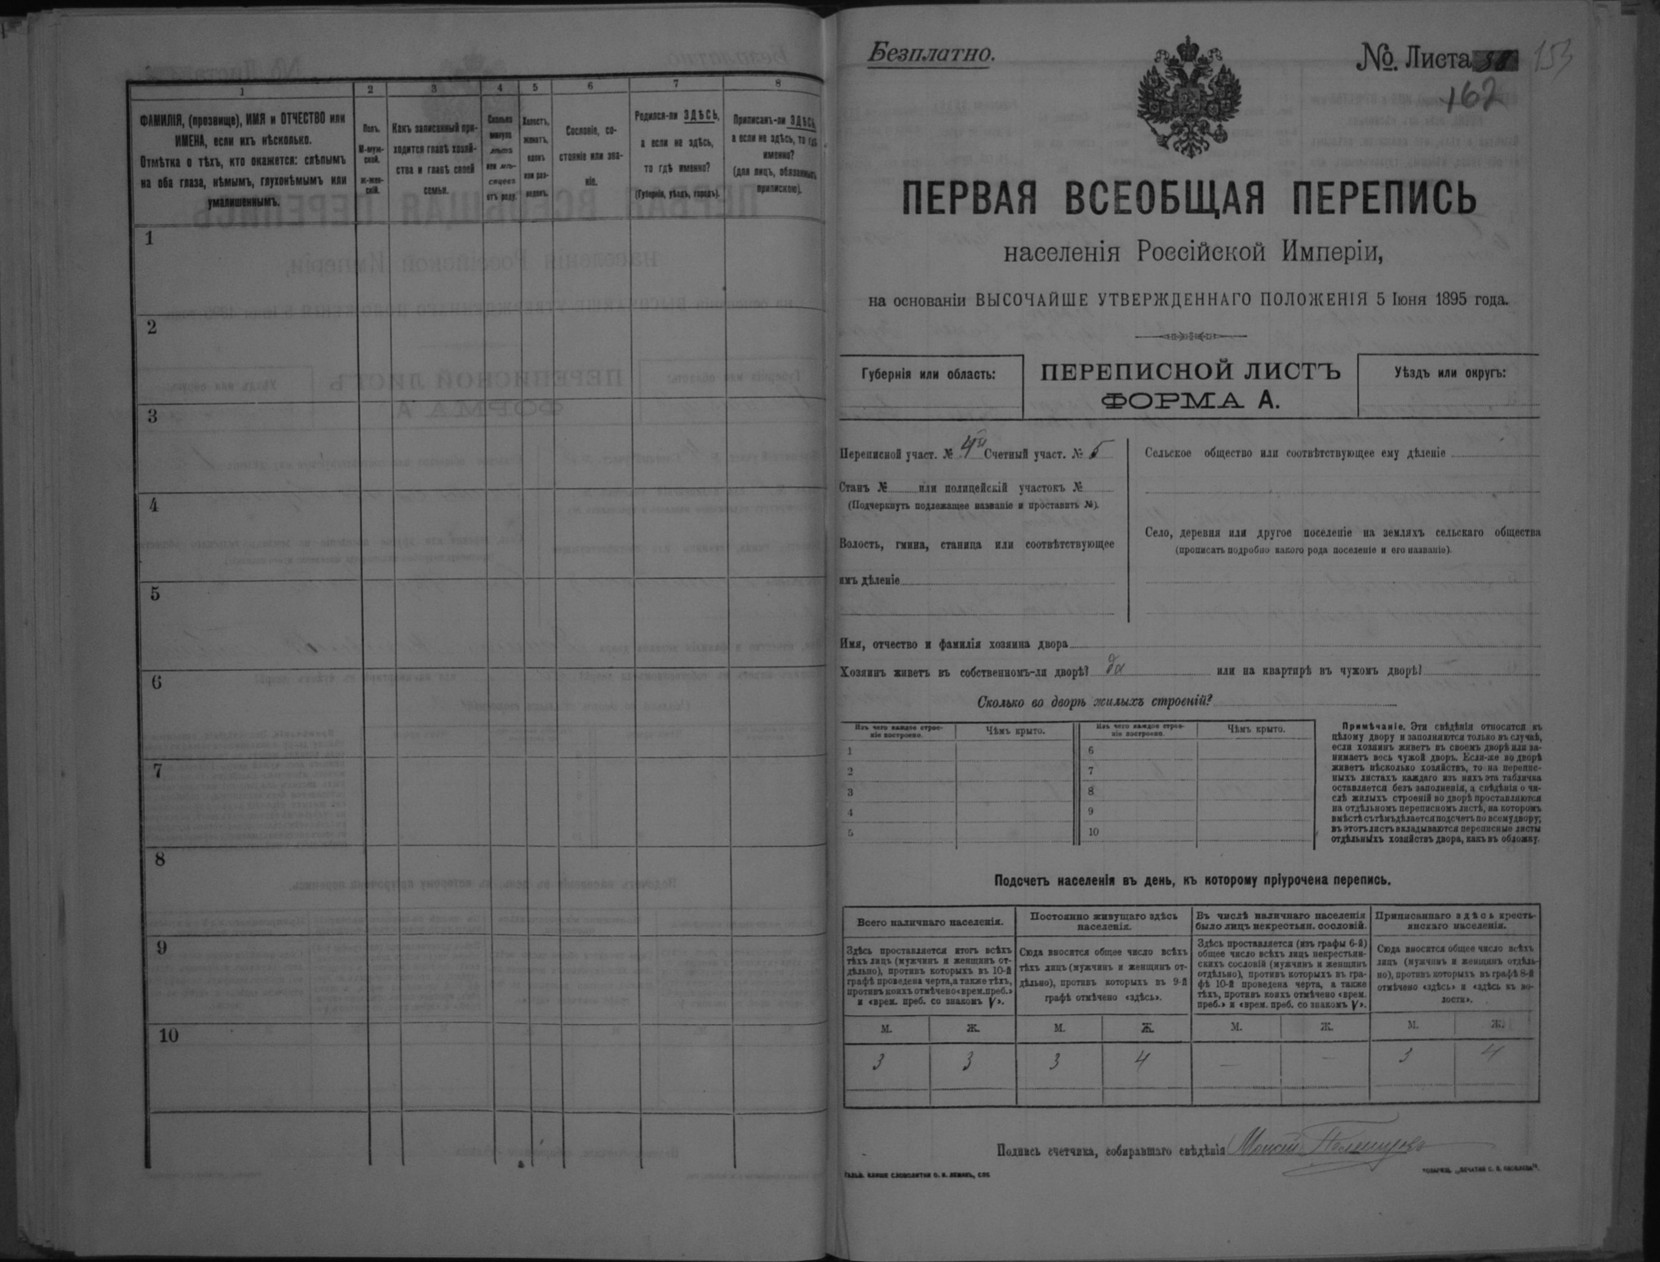 1
2
3
4
5
6
7
8
ФАМИЛІЯ, (прозвище), ИМЯ и ОТЧЕСТВО или
ИМЕНА, если ихъ нѣсколько.
Отмѣтка о тѣхъ, кто окажется: слѣпымъ
на оба глаза, нѣмымъ, глухонѣмымъ или
умалишеннымъ.
Полъ.
М-муж-
ской.
ж-жен-
скій.
Какъ записанный при-
ходится главѣ хозяй-
ства и главѣ своей
семьи.
Сколько
минуло
лѣтъ
или мѣ-
сяцевъ
отъ роду.
Холостъ,
женатъ,
вдовъ
или раз-
веденъ.
Сословіе, со-
стояніе или зва-
ніе.
Родился-ли ЗДѢСЬ,
а если не здѣсь,
то гдѣ именно?
(Губернія, уѣздъ, городъ).
Приписанъ-ли ЗДѢСЬ,
а если не здѣсь, то гдѣ
именно?
(для лицъ, обязанныхъ
припиской).
1
2
3
4
5
6
7
8
9
10
Безплатно.
№. Листа
153
162
ПЕРВАЯ ВСЕОБЩАЯ ПЕРЕПИСЬ
населенія Россійской Имперіи,
на основаніи ВЫСОЧАЙШЕ УТВЕРЖДЕННАГО ПОЛОЖЕНІЯ 5 Іюня 1895 года.
Губернія или область:
ПЕРЕПИСНОЙ ЛИСТЪ
ФОРМА А.
Уѣздъ или округъ:
Переписной участ. № 4й Счетный участ. № 5
Станъ № или полицейскій участокъ №
(Подчеркнуть подлежащее названіе и проставить №).
Волость, гмина, станица или соотвѣтствующее
имъ дѣленіе
Сельское общество или соотвѣтствующее ему дѣленіе
Село, деревня или другое поселеніе на земляхъ сельскаго общества
(прописать подробно какого рода поселеніе и его названіе).
Имя, отчество и фамилія хозяина двора
Хозяинъ живетъ въ собственномъ-ли дворѣ? да или на квартирѣ въ чужомъ дворѣ?
Сколько во дворѣ жилыхъ строеній?
Изъ чего каждое строе-
ніе построено.
Чѣмъ крыто.
Изъ чего каждое строе-
ніе построено.
Чѣмъ крыто.
1
2
3
4
5
6
7
8
9
10
Примѣчаніе. Эти свѣдѣнія относятся къ
цѣлому двору и заполняются только въ случаѣ,
если хозяинъ живетъ въ своемъ дворѣ или за-
нимаетъ весь чужой дворъ. Если-же во дворѣ
живетъ нѣсколько хозяйствъ, то на перепис-
ныхъ листахъ каждаго изъ нихъ эта табличка
оставляется безъ заполненія, а свѣдѣнія о чи-
слѣ жилыхъ строеній во дворѣ проставляются
на отдѣльномъ переписномъ листѣ, на которомъ
вмѣстѣ съ тѣмъ дѣлается подсчетъ по всему двору;
въ этотъ листъ вкладываются переписные листы
отдѣльныхъ хозяйствъ двора, какъ въ обложку.
Подсчетъ населенія въ день, къ которому пріурочена перепись.
Всего наличнаго населенія.
Здѣсь проставляется итогъ всѣхъ
тѣхъ лицъ (мужчинъ и женщинъ от-
дѣльно), противъ которыхъ въ 10-й
графѣ проведена черта, а также тѣхъ,
противъ коихъ отмѣчено «врем. преб.»
и «врем. преб. со знакомъ V».
Постоянно живущаго здѣсь
населенія.
Сюда вносится общее число всѣхъ
тѣхъ лицъ (мужчинъ и женщинъ от-
дѣльно), противъ которыхъ въ 9-й
графѣ отмѣчено «здѣсь».
Въ числѣ наличнаго населенія
было лицъ некрестьян. сословій.
Здѣсь проставляется (изъ графы 6-й)
общее число всѣхъ лицъ некрестьян-
скихъ сословій (мужчинъ и женщинъ
отдѣльно), противъ которыхъ въ гра-
фѣ 10-й проведена черта, а также
тѣхъ, противъ коихъ отмѣчено «врем.
преб.» и «врем. преб. со знакомъ V».
Приписаннаго здѣсь кресть-
янскаго населенія.
Сюда вносится общее число всѣхъ
лицъ (мужчинъ и женщинъ отдѣль-
но), противъ которыхъ въ графѣ 8-й
отмѣчено «здѣсь» и «здѣсь въ во-
лости».
М. Ж. М. Ж. М. Ж. М. Ж.
3 3 3 4 — — 3 4
Подпись счетчика, собиравшаго свѣдѣнія